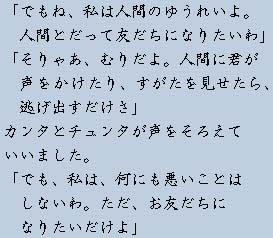 「でもね、私は人間のゆうれいよ。
人間とだって友だちになりたいわ」
「そりゃあ、むりだよ。人間に君が
声をかけたり、すがたを見せたら、
逃げ出すだけさ」
カンタとチュンタが声をそろえて
いいました。
「でも、私は、何にも悪いことは
しないわ。ただ、お友だちに
なりたいだけよ」